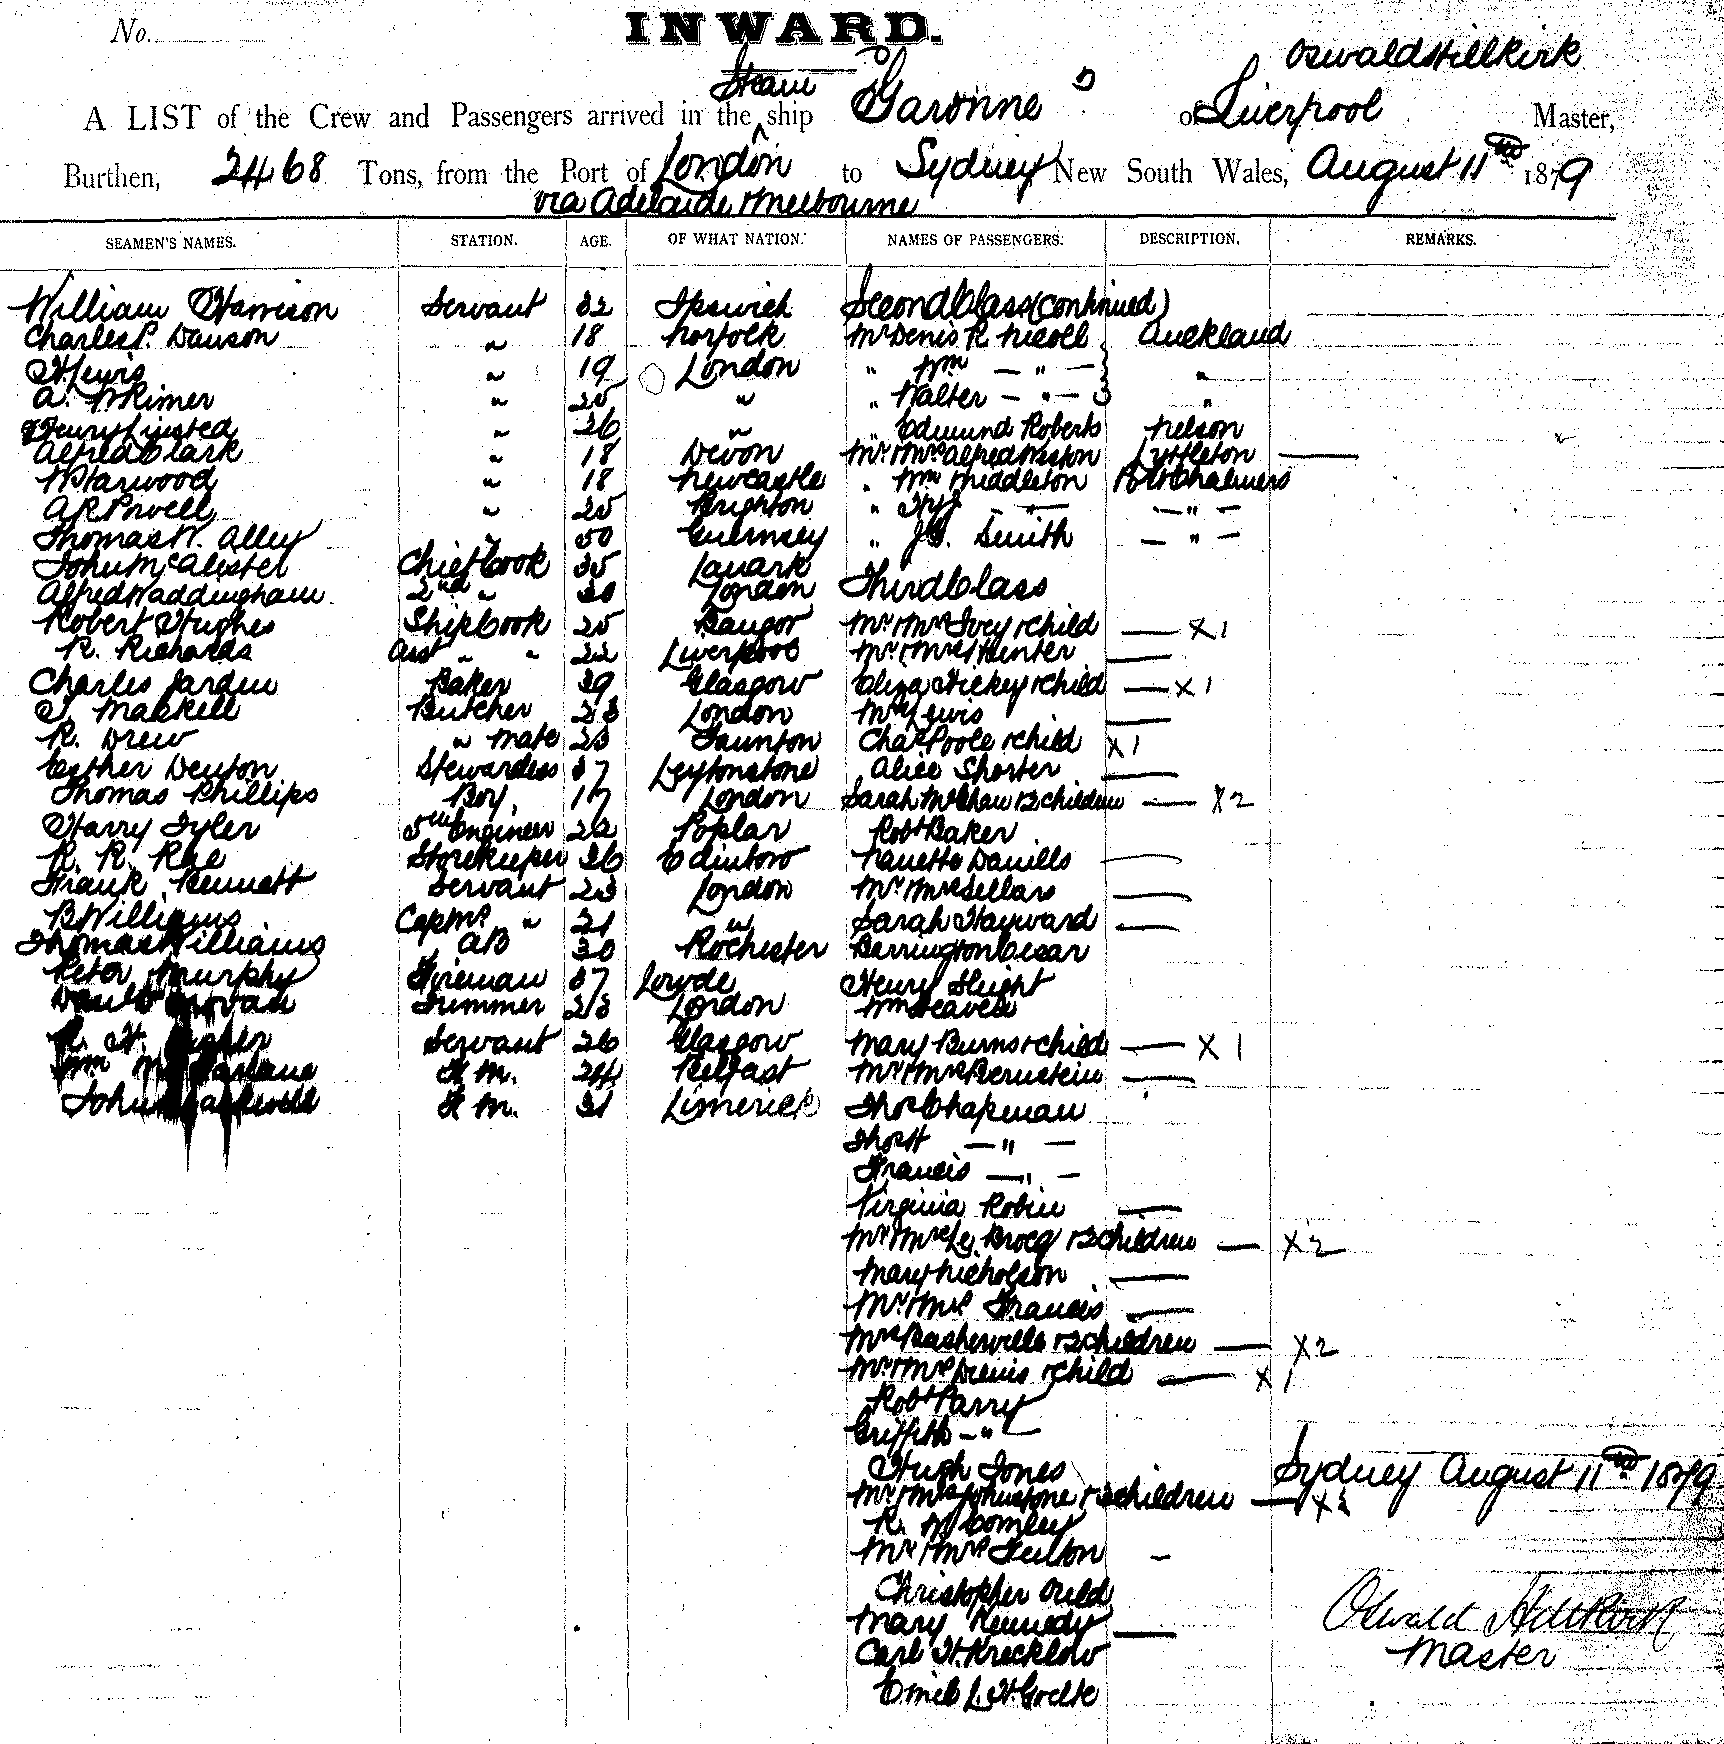 No.
INWARD.
Oswald Hillkirk
Steam
A LIST of the Crew and Passengers arrived in the ship Garonne of Liverpool Master,
Burthen, 2468 Tons, from the Port of London to Sydney New South Wales, August 11th 1879
via Adelaide & Melbourne
SEAMEN'S NAMES. STATION. AGE. OF WHAT NATION. NAMES OF PASSENGERS. DESCRIPTION. REMARKS.
William Harrison Servant 32 Ipswich Second Class (Continued)
Charles P. Dawson " 18 Norfolk Mr Denis R. Nicoll Auckland
H Lewis " 19 London " Wm — " — "
A. W Rimer " 25 " " Walter — " — "
Henry Linsted " 26 " " Edmund Roberts Nelson
Alfred Clark " 18 Devon Mr & Mrs Alfred Lyttleton —
W Harwood " 18 Newcastle " Wm Middleton Port Chalmers
A R Powell " 25 Brighton " — " —
Thomas W. Alley " 50 Guernsey " J. G. Smith — " —
John McAlister Chief Cook 35 Lanark
Alfred Waddingham 2nd " 30 London Third Class
Robert Hughes Ships Cook 25 Bangor Mr & Mrs Ivey & child — X 1
R. Richards Asst " " 22 Liverpool Mr & Mrs Hunter —
Charles Jardin Baker 39 Glasgow Eliza Hickey & child — X 1
T Maskell Butcher 23 London Mrs Lewis —
R. Drew " Mate 23 Taunton Chas Poole & child X 1
Esther Denton Stewardess 37 Leytonstone Alice Shorter —
Thomas Phillips Boy 17 London Sarah McShaw & 2 children — X 2
Harry Tyler 5th Engineer 22 Poplar Robt Baker
R. R. Rae Storekeeper 36 Edinboro Nanette Daniells —
Frank Kennett Servant 23 London Mr & Mrs Sellars —
B Williams Captns " 21 " Sarah Hayward —
Thomas Williams AB 30 Rochester Barrington Cesar
Peter Murphy Fireman 37 Henry Sleight
Trimmer 23 London Wm Heaven
Servant 26 Glasgow Mary Burns & child — X 1
Wm F M. 24 Belfast Mr & Mrs Bernstein —
John F M. 31 Limerick Thos Chapman
Thos H — " —
Francis — " —
Virginia Robin —
Mr & Mrs Le Brocq & 2 children — X 2
Mary Nicholson —
Mr & Mrs Francis —
Mrs Baskerville & 2 children — X 2
Mr & Mrs & child — X 1
Robt Parry
Griffith — " —
Hugh Jones
Sydney August 11th 1879
Mr & Mrs Johnstone & children —
R. W Comley
Mr & Mrs Fulton —
Christopher Ould
Mary Kennedy —
Oswald Hillkirk
Master
Carl H. Krecklow
Emil L. H. Goelke